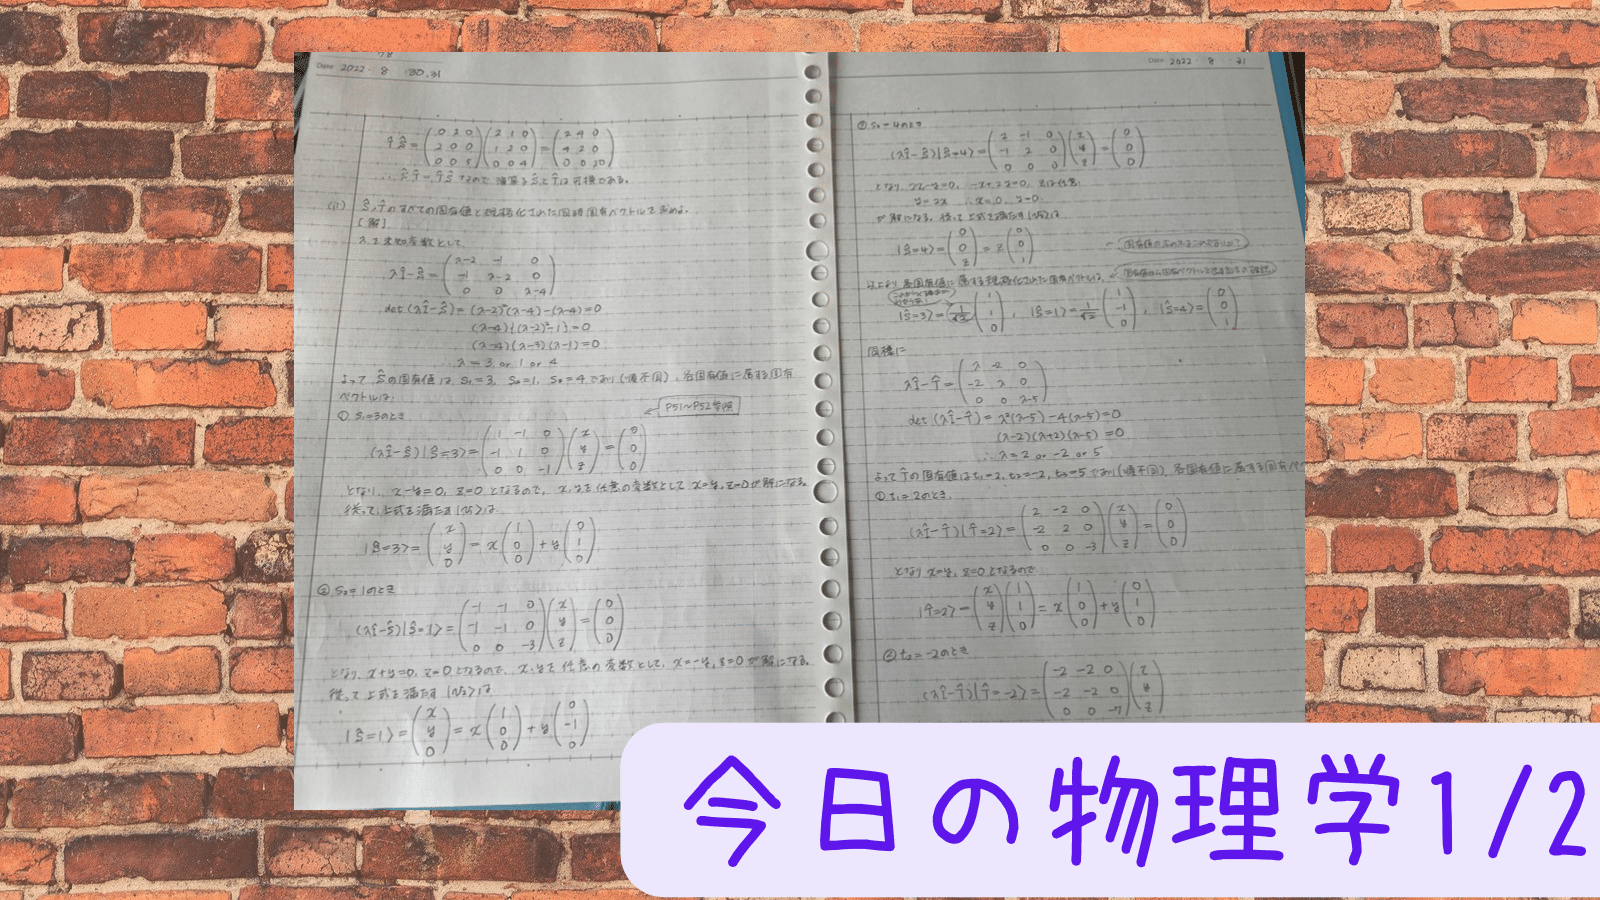 Date 2022 8 30.31
T̂Ŝ = (0 2 0 / 2 0 0 / 0 0 5)(2 1 0 / 1 2 0 / 0 0 4) = (2 4 0 / 4 2 0 / 0 0 20)
∴ ŜT̂ = T̂Ŝ なので 演算子ŜとT̂は可換である。
(ii) Ŝ,T̂のすべての固有値と規格化された同時固有ベクトルを求めよ。
[解]
λを未知変数として、
λÎ-Ŝ = (λ-2 -1 0 / -1 λ-2 0 / 0 0 λ-4)
det(λÎ-Ŝ) = (λ-2)²(λ-4)-(λ-4)=0
(λ-4){(λ-2)²-1}=0
(λ-4)(λ-3)(λ-1)=0
∴ λ = 3, or 1 or 4
よって Ŝの固有値は S₁=3, S₂=1, S₃=4であり(順不同)、各固有値に属する固有
ベクトルは、
① S₁=3のとき
P51~P52参照
(λÎ-Ŝ)|Ŝ=3> = (1 -1 0 / -1 1 0 / 0 0 -1)(x / y / z) = (0 / 0 / 0)
となり、x-y=0, z=0 となるので、x,yを任意の変数として x=y, z=0が解になる。
従って上式を満たす |V₁>は
|Ŝ=3> = (x / y / 0) = x(1 / 0 / 0) + y(0 / 1 / 0)
② S₂=1のとき
(λÎ-Ŝ)|Ŝ=1> = (-1 -1 0 / -1 -1 0 / 0 0 -3)(x / y / z) = (0 / 0 / 0)
となり、x+y=0, z=0となるので、x,yを任意の変数として、x=-y, z=0が解になる。
従って上式を満たす |V₂>は
|Ŝ=1> = (x / y / 0) = x(1 / 0 / 0) + y(0 / -1 / 0)
Date 2022 8 31
③ S₃=4のとき
(λÎ-Ŝ)|Ŝ=4> = (2 -1 0 / -1 2 0 / 0 0 0)(x / y / z) = (0 / 0 / 0)
となり、2x-y=0, -x+2y=0, zは任意
y=2x ∴x=0, y=0
が解になる。従って上式を満たす|V₃>は
|Ŝ=4> = (0 / 0 / z) = z(0 / 0 / 1)
以上より 各固有値に属する規格化された固有ベクトルは、
|Ŝ=3> = 1/√2 (1 / 1 / 0), |Ŝ=1> = 1/√2 (1 / -1 / 0), |Ŝ=4> = (0 / 0 / 1)
同様に
λÎ-T̂ = (λ -2 0 / -2 λ 0 / 0 0 λ-5)
det(λÎ-T̂) = λ²(λ-5)-4(λ-5)=0
(λ-2)(λ+2)(λ-5)=0
∴ λ=2 or -2 or 5
よって T̂の固有値は t₁=2, t₂=-2, t₃=5であり(順不同)、各固有値に属する固有ベ
① t₁=2のとき、
(λÎ-T̂)|T̂=2> = (2 -2 0 / -2 2 0 / 0 0 -3)(x / y / z) = (0 / 0 / 0)
となり x=y, z=0となるので
|T̂=2> = (x / y / z)(1 / 1 / 0) = x(1 / 0 / 0) + y(0 / 1 / 0)
② t₂=-2のとき
(λÎ-T̂)|T̂=-2> = (-2 -2 0 / -2 -2 0 / 0 0 -7)(x / y / z)
今日の物理学1/2